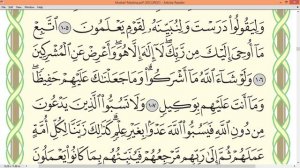 Mushaf Madinah.pdf (SECURED) - Adobe Reader
وَلِيَقُولُوا۟ دَرَسْتَ وَلِنُبَيِّنَهُۥ لِقَوْمٍ يَعْلَمُونَ ١٠٥ ٱتَّبِعْ
مَآ أُوحِىَ إِلَيْكَ مِن رَّبِّكَ لَآ إِلَٰهَ إِلَّا هُوَ وَأَعْرِضْ عَنِ ٱلْمُشْرِكِينَ
١٠٦ وَلَوْ شَآءَ ٱللَّهُ مَآ أَشْرَكُوا۟ وَمَا جَعَلْنَٰكَ عَلَيْهِمْ حَفِيظًا
وَمَآ أَنتَ عَلَيْهِم بِوَكِيلٍ ١٠٧ وَلَا تَسُبُّوا۟ ٱلَّذِينَ يَدْعُونَ
مِن دُونِ ٱللَّهِ فَيَسُبُّوا۟ ٱللَّهَ عَدْوًۢا بِغَيْرِ عِلْمٍ كَذَٰلِكَ زَيَّنَّا لِكُلِّ أُمَّةٍ
عَمَلَهُمْ ثُمَّ إِلَىٰ رَبِّهِم مَّرْجِعُهُمْ فَيُنَبِّئُهُم بِمَا كَانُوا۟ يَعْمَلُونَ